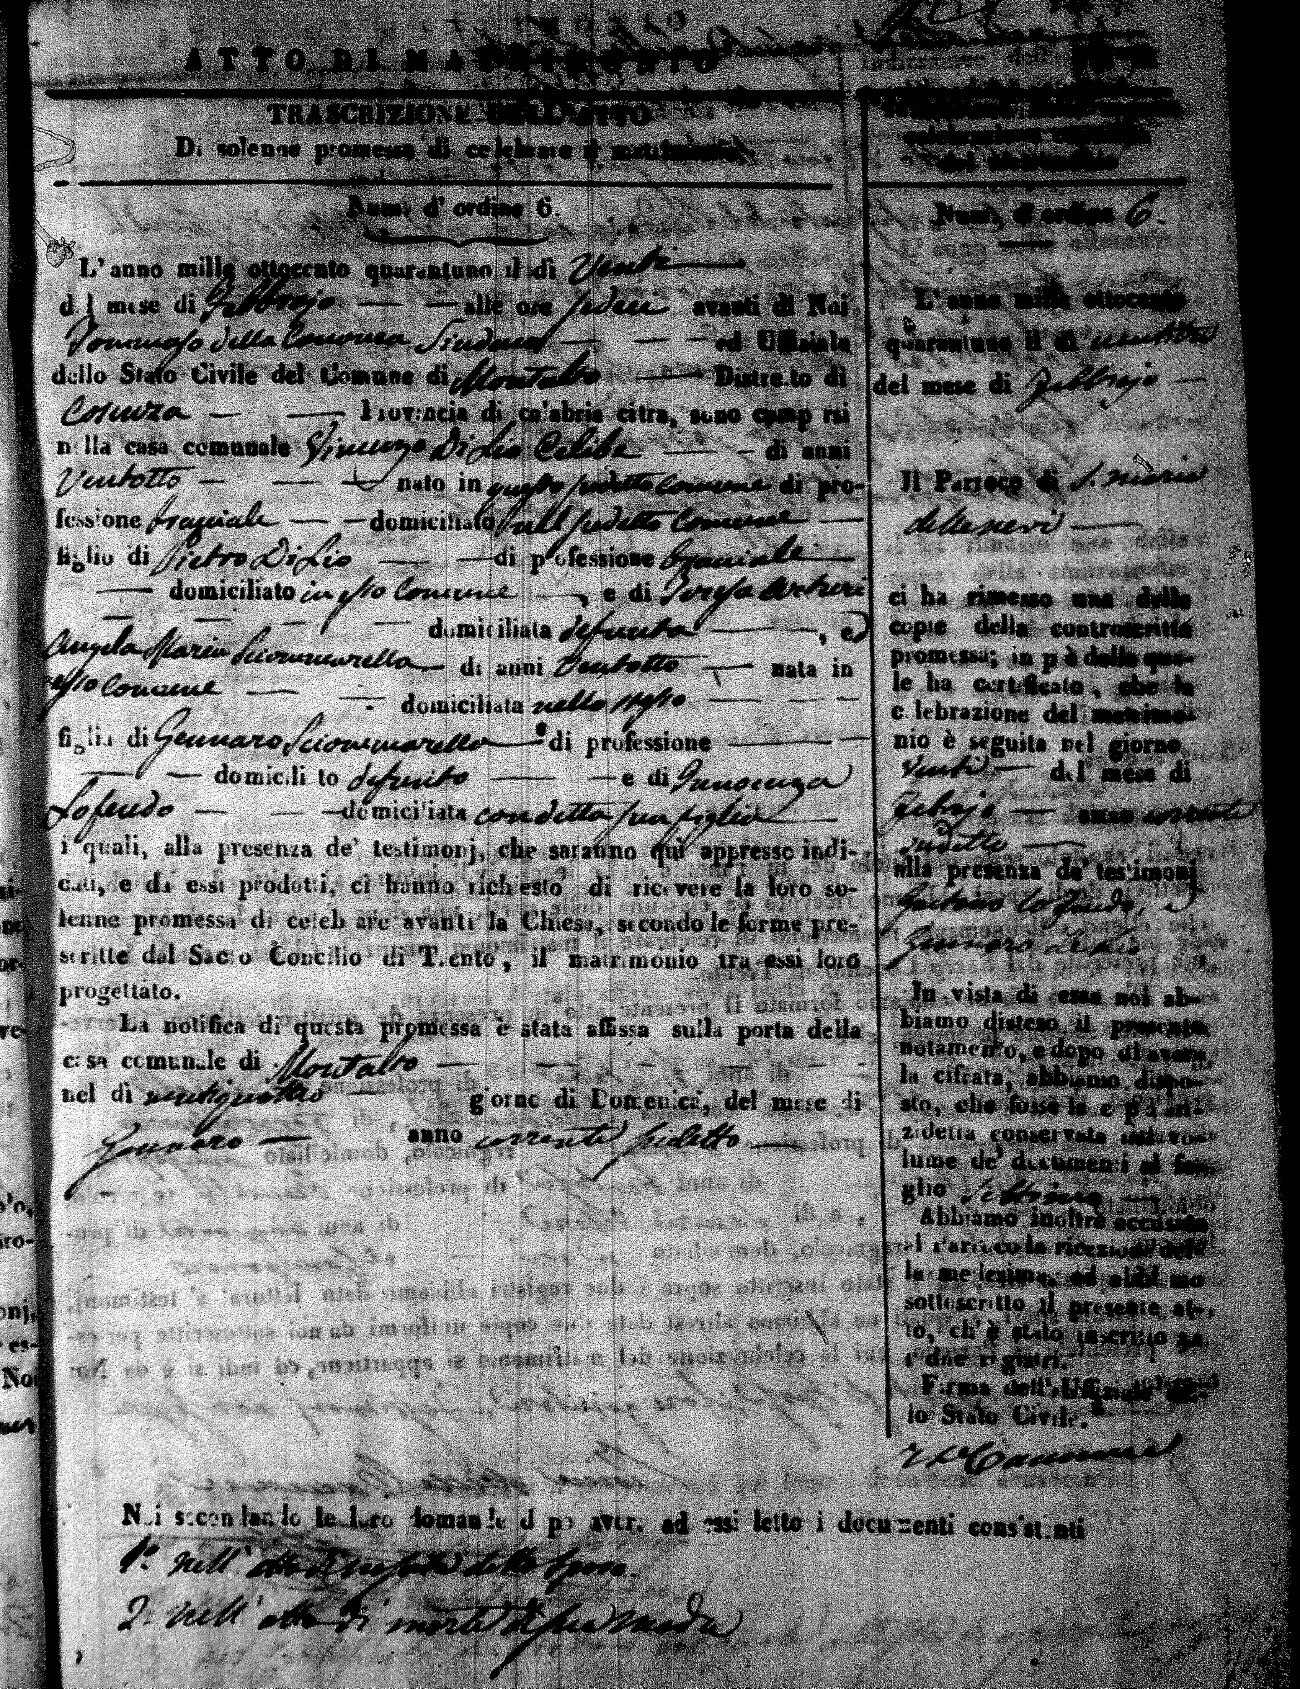 ATTO DI MATRIMONIO
TRASCRIZIONE DELL'ATTO
Di solenne promessa di celebrare il matrimonio
Num. d'ordine 6.
L'anno mille ottocento quarantuno il dì Venti
del mese di Febbrajo — — alle ore sedici avanti di Noi
Tommaso della Cananea Sindaco — — — ed Uffiziale
dello Stato Civile del Comune di Montalto — Distretto di
Cosenza — — Provincia di calabria citra, sono comparsi
nella casa comunale Vincenzo Di Lio Celibe — — di anni
Ventotto — — — nato in questo sudetto Comune di pro-
fessione bracciale — — domiciliato nell sudetto Comune —
figlio di Pietro Di Lio — — di professione bracciale —
— domiciliato in esso Comune —, e di Teresa
— — — — domiciliata defunta — —, ed
Angela Maria Sciammarella — di anni Ventotto — nata in
esso Comune — — domiciliata nello stesso — — —
figlia di Gennaro Sciammarella — di professione — —
— — domiciliato defunto — — e di Innocenza
Lofeudo — — — domiciliata con detta sua figlia —
i quali, alla presenza de' testimonj, che saranno qui appresso indi-
cati, e da essi prodotti, ci hanno richiesto di ricevere la loro so-
lenne promessa di celebrare avanti la Chiesa, secondo le forme pre-
scritte dal Sacro Concilio di Trento, il matrimonio tra essi loro
progettato.
La notifica di questa promessa è stata affissa sulla porta della
casa comunale di Montalto — — — — — —
nel dì ventiquattro — giorno di Domenica, del mese di
Gennaro — anno corrente sudetto —
Noi secondando le loro domande dopo aver ad essi letto i documenti consistenti
1°. nell'atto di nascita della sposa.
2. nell'atto di morte di sua Madre
del matrimonio
Num. d'ordine 6.
L'anno mille ottocento
quarantuno il dì ventitre
del mese di Febbrajo —
Il Parroco di S. Maria
della neve —
ci ha rimesso una delle
copie della controscritta
promessa; in piè della qua-
le ha certificato, che la
celebrazione del matrimo-
nio è seguita nel giorno
venti — del mese di
Febrajo — anno corrente
sudetto —
alla presenza de' testimonj
Gaetano Lo Feudo, e
Gennaro Di Lio
In vista di essa noi ab-
biamo disteso il presente
notamento, e dopo di averla
cifrata, abbiamo dispo-
sto, che fosse la copia an-
zidetta conservata nel vo-
lume de' documenti al fo-
glio settimo —
Abbiamo inoltre accusata
al Parroco la ricezione del-
la medesima, ed abbiamo
sottoscritto il presente at-
to, ch'è stato inscritto su
i due registri.
Firma dell'Uffiziale del-
lo Stato Civile.